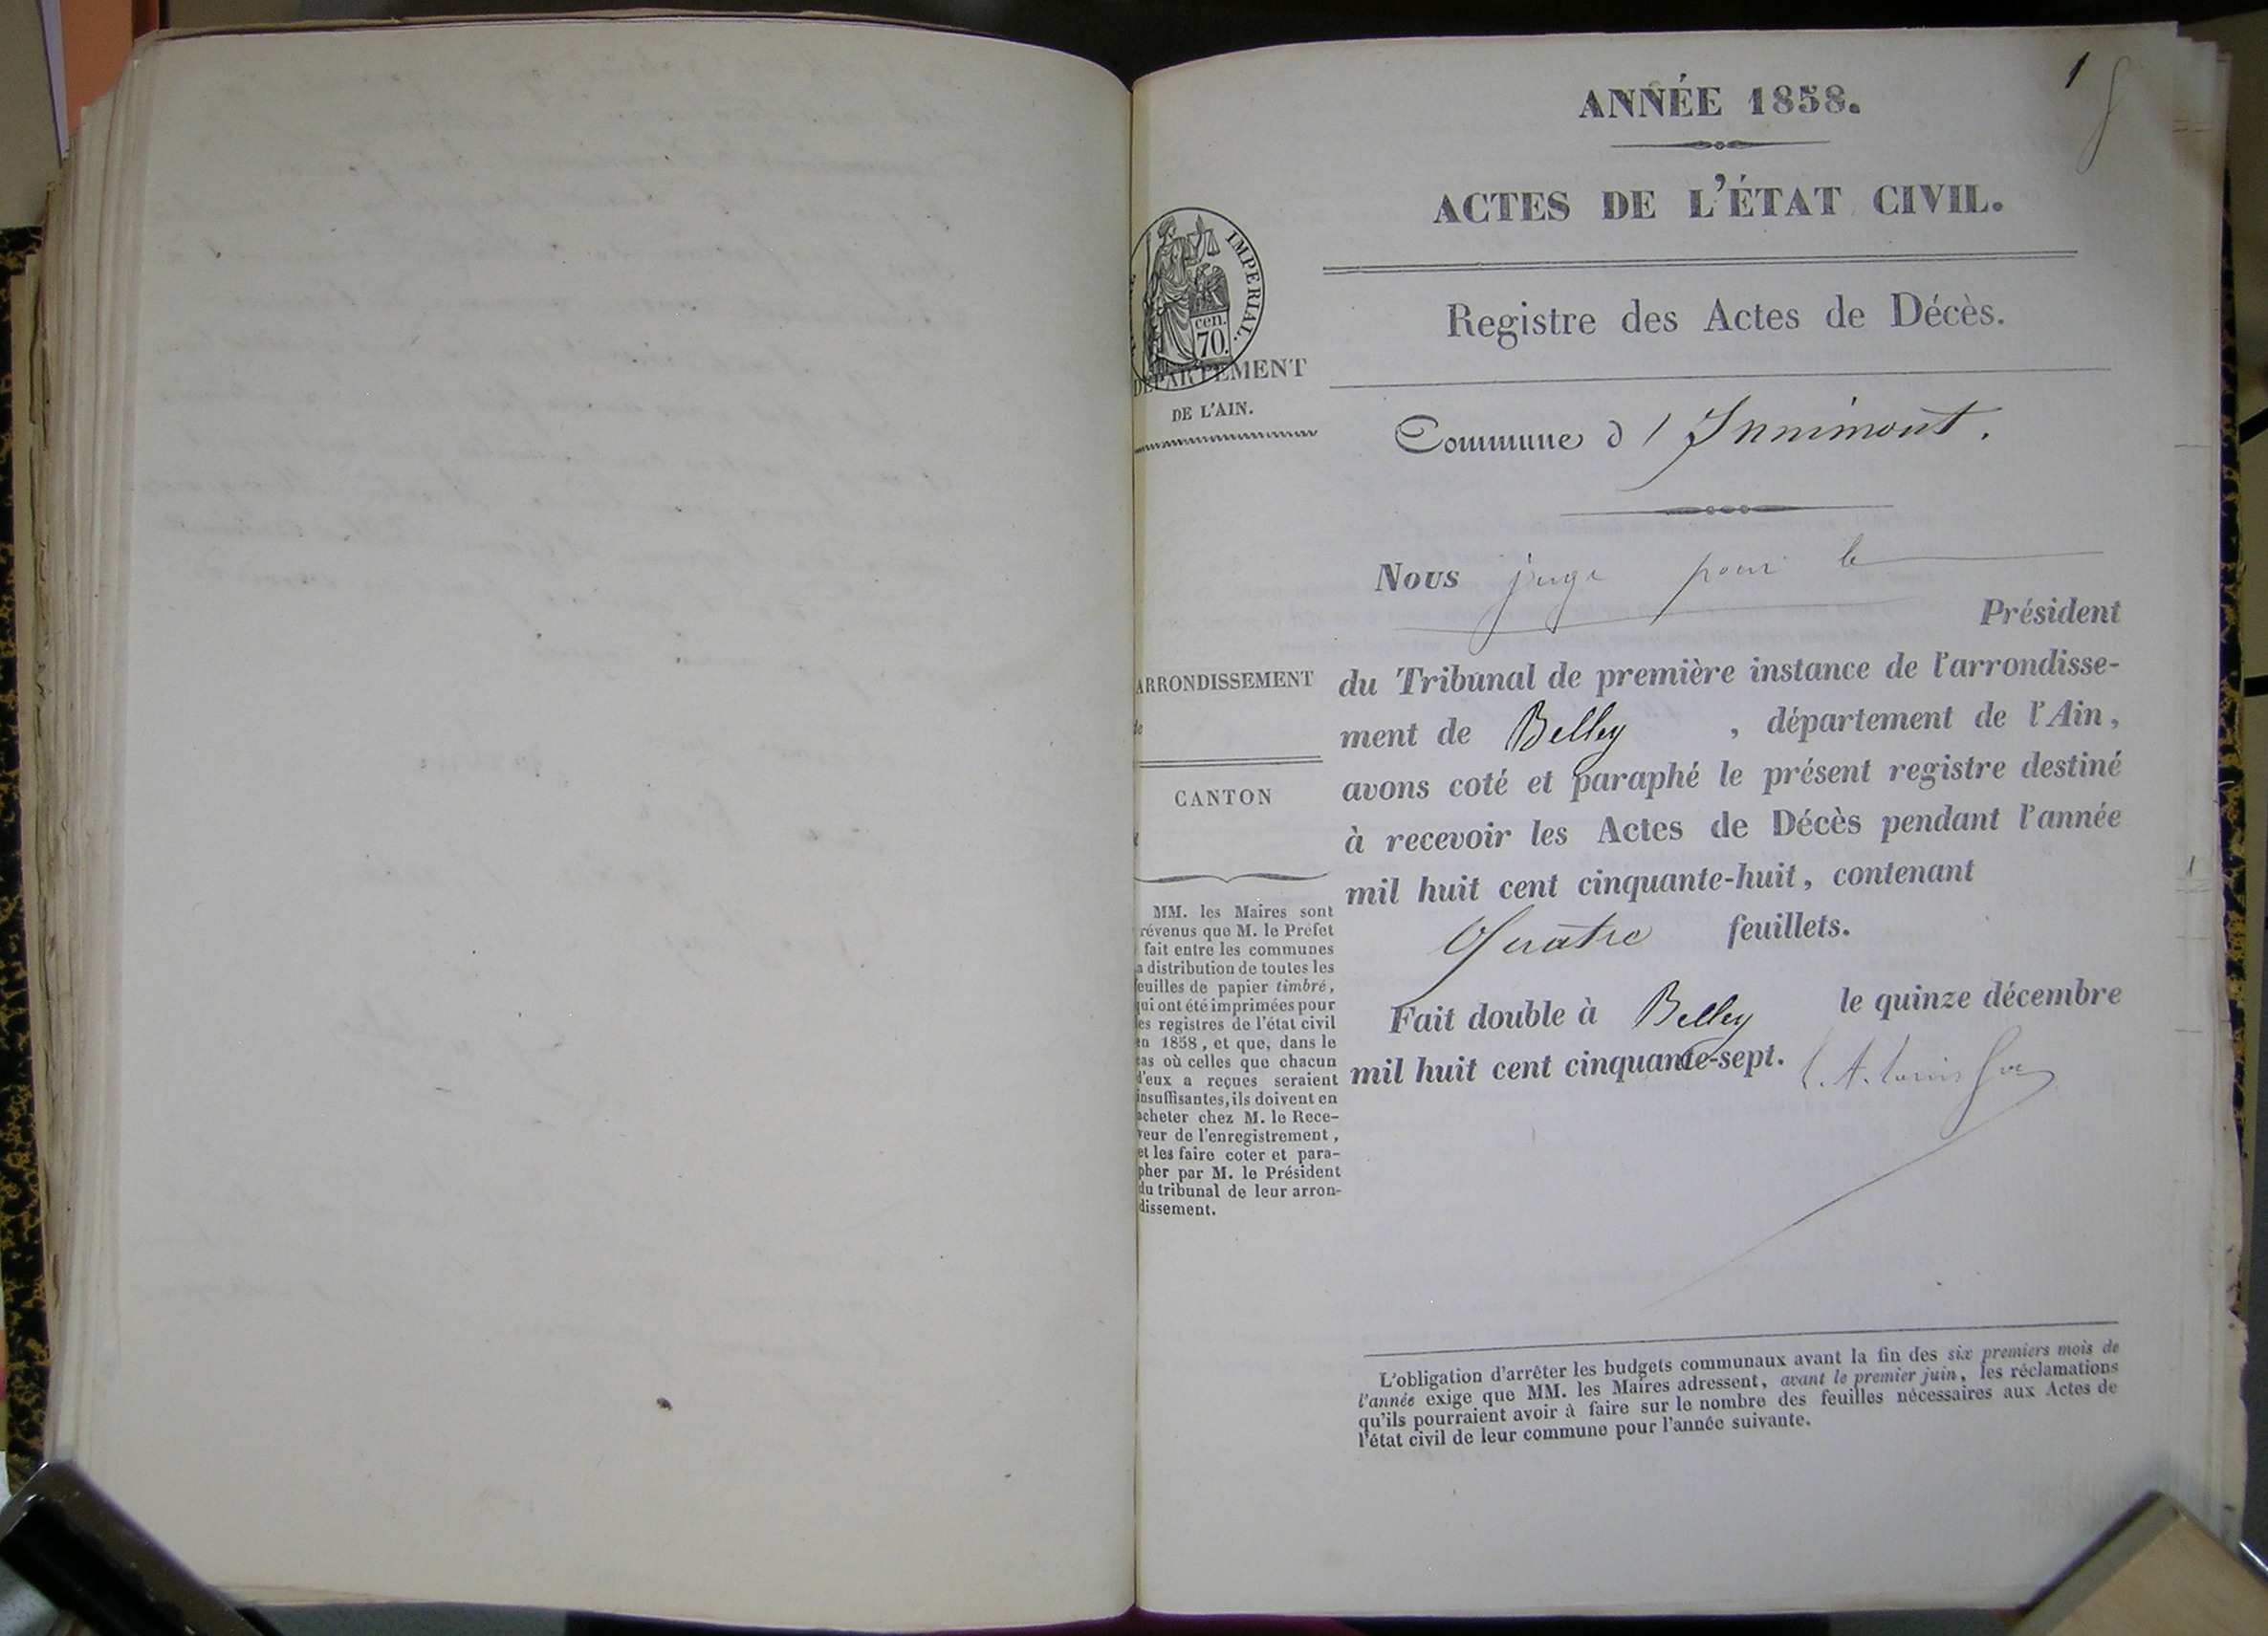 1
ANNÉE 1858.
ACTES DE L'ÉTAT CIVIL.
IMPERIAL.
cen.
70.
DÉPARTEMENT
DE L'AIN.
ARRONDISSEMENT
de
CANTON
MM. les Maires sont
révenus que M. le Préfet
fait entre les communes
a distribution de toutes les
feuilles de papier timbré,
qui ont été imprimées pour
les registres de l'état civil
en 1858, et que, dans le
cas où celles que chacun
d'eux a reçues seraient
insuffisantes, ils doivent en
acheter chez M. le Rece-
veur de l'enregistrement,
et les faire coter et para-
pher par M. le Président
du tribunal de leur arron-
dissement.
Registre des Actes de Décès.
Commune d'Innimont.
Nous juge pour le
Président
du Tribunal de première instance de l'arrondisse-
ment de Belley, département de l'Ain,
avons coté et paraphé le présent registre destiné
à recevoir les Actes de Décès pendant l'année
mil huit cent cinquante-huit, contenant
Quatre feuillets.
Fait double à Belley le quinze décembre
mil huit cent cinquante-sept.
L'obligation d'arrêter les budgets communaux avant la fin des six premiers mois de
l'année exige que MM. les Maires adressent, avant le premier juin, les réclamations
qu'ils pourraient avoir à faire sur le nombre des feuilles nécessaires aux Actes de
l'état civil de leur commune pour l'année suivante.